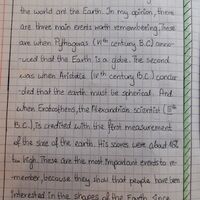 the world are the Earth. In my opinion, there
are three main events worth remembering. These
are when Pythagoras (VIth century B.C) anno-
uced that the Earth is a globe. The second
was when Aristotle (IVth century B.C.) conclu-
ded that the earth must be spherical. And
when Eratosthens, the Alexandrian scientist (IIth
B.C.), is credited with the first measurement
of the size of the earth. His scores were about
too high. These are the most important events to re-
member, because they show that people have been
interested in the shapes of the Earth since